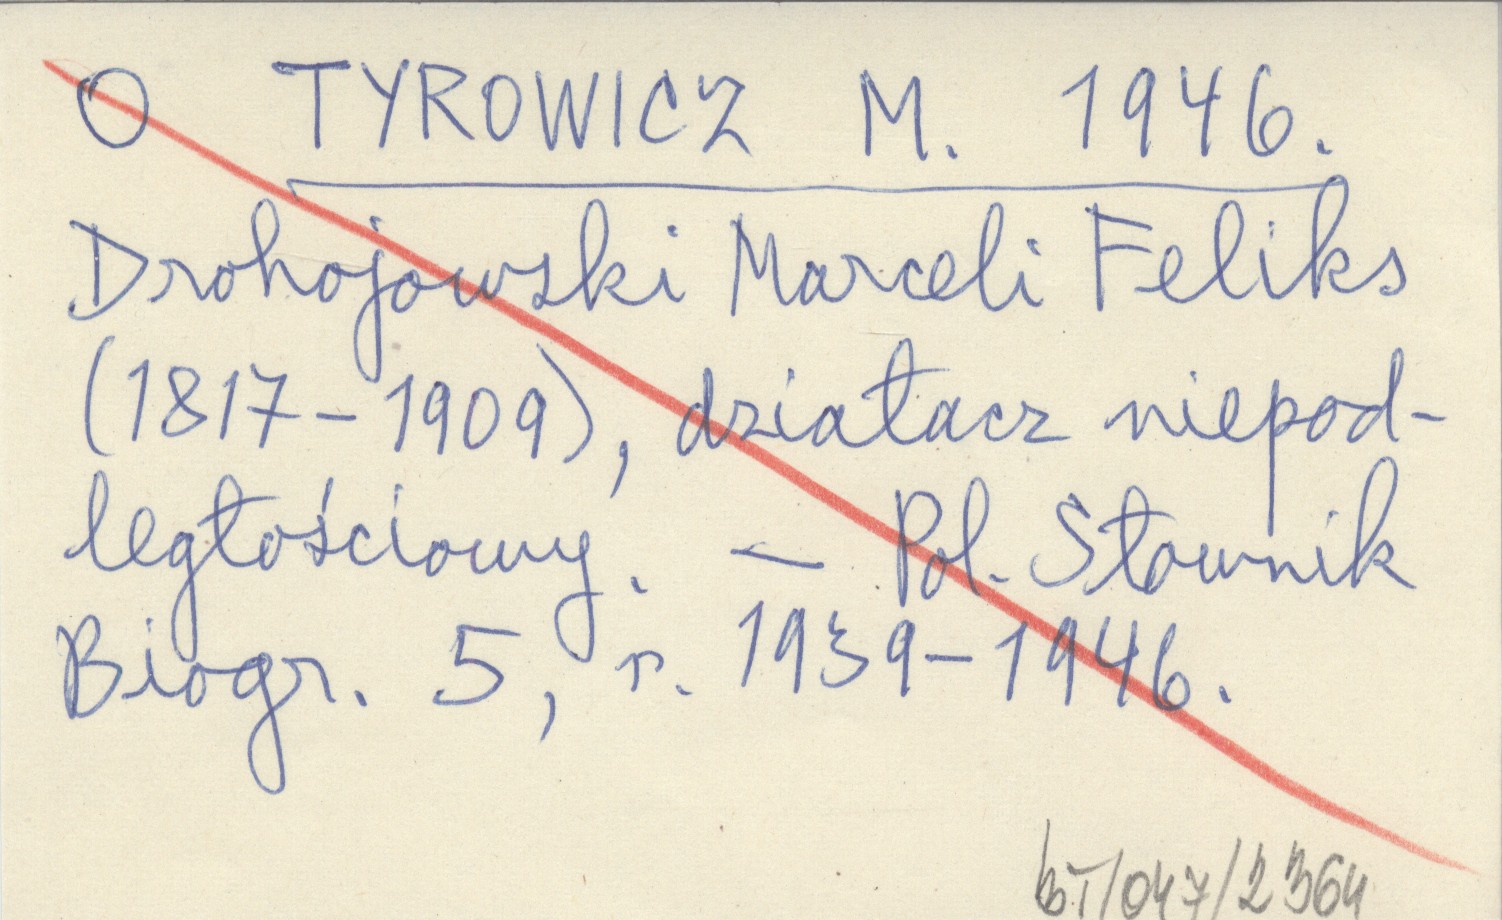 O TYROWICZ M. 1946.
Drohojowski Marceli Feliks
(1817-1909), działacz niepod-
ległościowy. – Pol. Słownik
Biogr. 5, r. 1939-1946.
BT/047/2364